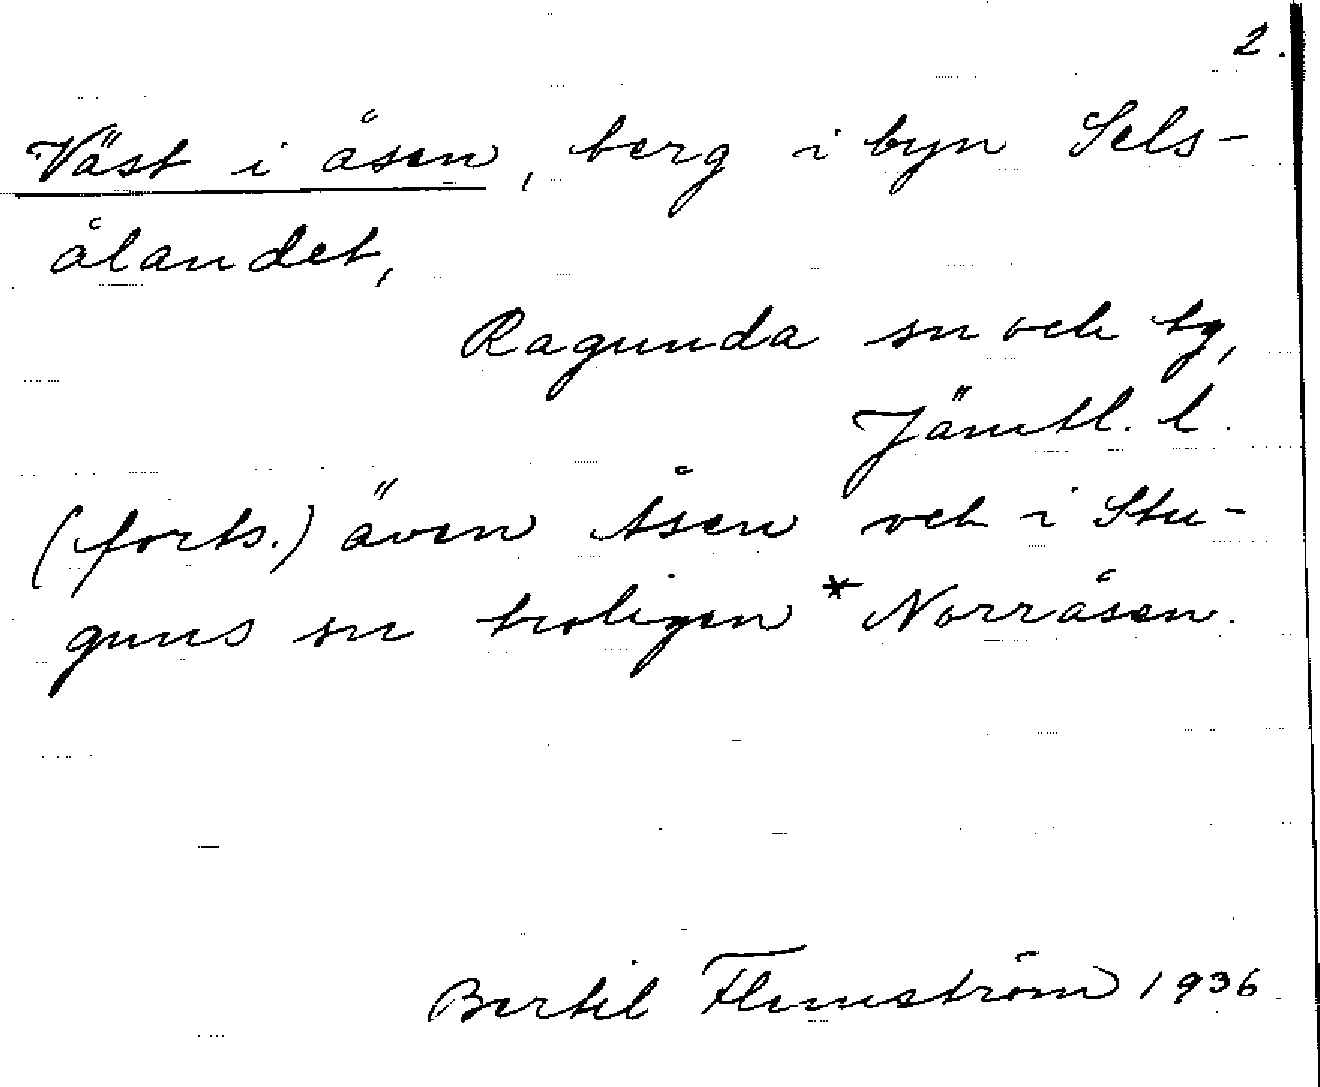 2.
Väst i åsen, berg i byn Sels-
ålandet,
Ragunda sn och tg,
Jämtl. l.
(forts.) även Åsen och i Stu-
guns sn troligen *Norråsen.
Bertil Flemström 1936